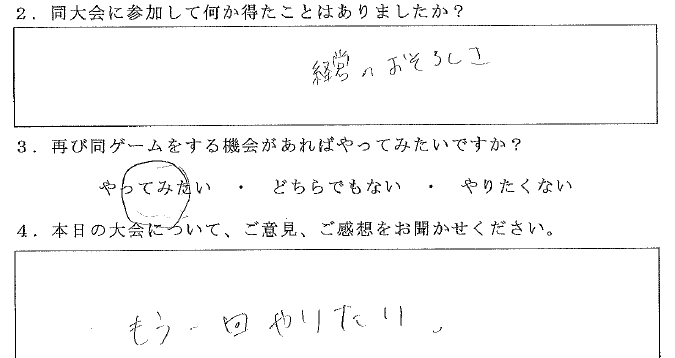 2．同大会に参加して何か得たことはありましたか？
経営のおそろしさ
3．再び同ゲームをする機会があればやってみたいですか？
やってみたい ・ どちらでもない ・ やりたくない
4．本日の大会について、ご意見、ご感想をお聞かせください。
もう一回やりたい。